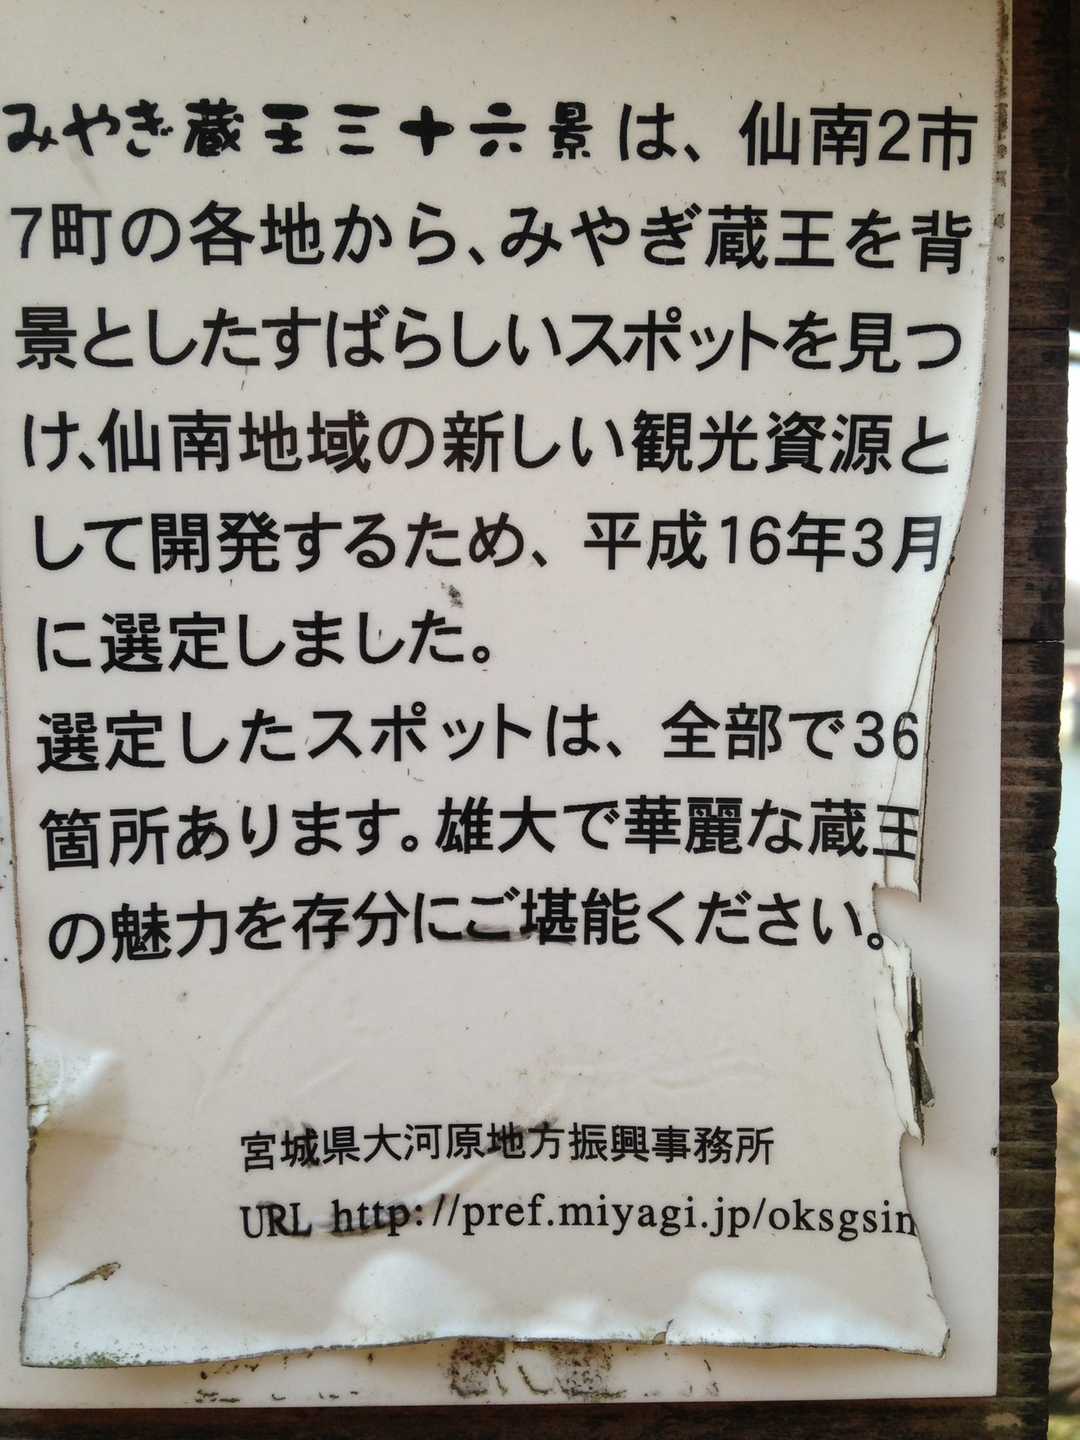 みやぎ蔵王三十六景は、仙南2市
7町の各地から、みやぎ蔵王を背
景としたすばらしいスポットを見つ
け、仙南地域の新しい観光資源と
して開発するため、平成16年3月
に選定しました。
選定したスポットは、全部で36
箇所あります。雄大で華麗な蔵王
の魅力を存分にご堪能ください。
宮城県大河原地方振興事務所
URL http://pref.miyagi.jp/oksgsin